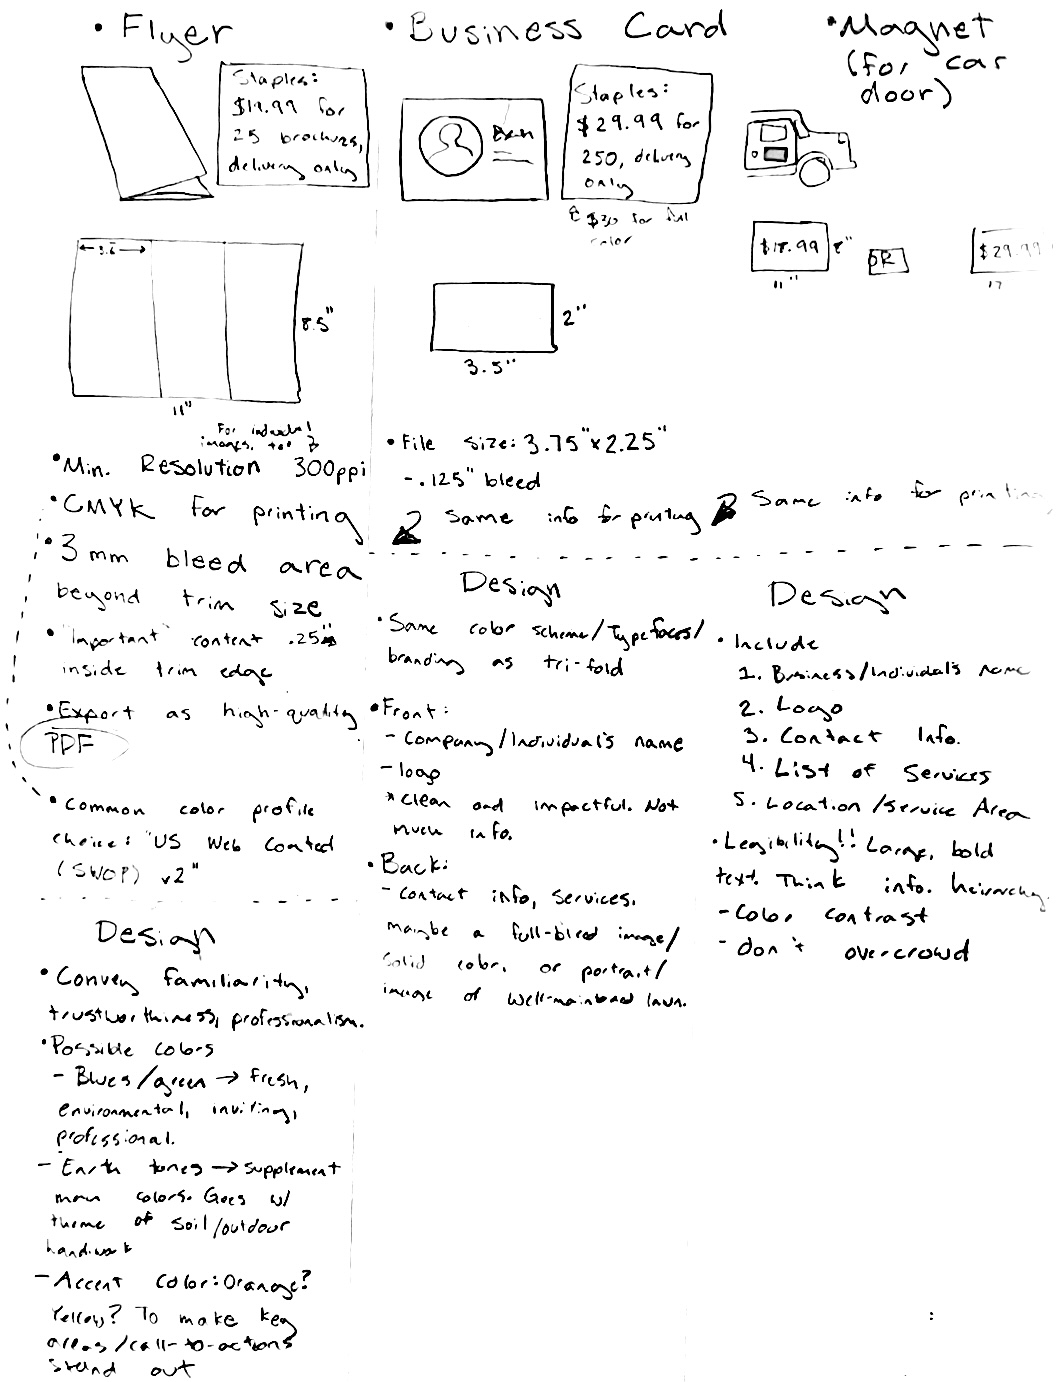 • Flyer
Staples:
$19.99 for
25 brochures,
delivery only
3.6
8.5"
11"
For individual
images, too
• Min. Resolution 300ppi
• CMYK for printing
• 3mm bleed area
beyond trim size
• "Important" content .25"
inside trim edge
• Export as high-quality
PDF
• Common color profile
choice: "US Web Coated
(SWOP) v2"
Design
• Convey familiarity,
trustworthiness, professionalism.
• Possible colors
- Blues/green → fresh,
environmental, inviting,
professional.
- Earth tones → supplement
main colors. Goes w/
theme of soil/outdoor
handiwork
- Accent color: Orange?
Yellow? To make key
areas/call-to-actions
stand out
• Business Card
Ben
Staples:
$29.99 for
250, delivery
only
$30 for full
color
2"
3.5"
• File size: 3.75"x2.25"
- .125" bleed
Same info for printing
Design
• Same color scheme/Typefaces/
branding as tri-fold
• Front:
- Company/Individual's name
- logo
* Clean and impactful. Not
much info.
• Back:
- contact info, services.
maybe a full-bleed image/
solid color. or portrait/
image of well-maintained lawn.
• Magnet
(for car
door)
$18.99
8"
11"
OR
$29.99
17
Same info for printing
Design
• Include
1. Business/Individal's name
2. Logo
3. Contact Info.
4. List of Services
5. Location/Service Area
• Legibility!! Large, bold
text. Think info. heirarchy.
- Color contrast
- don't overcrowd